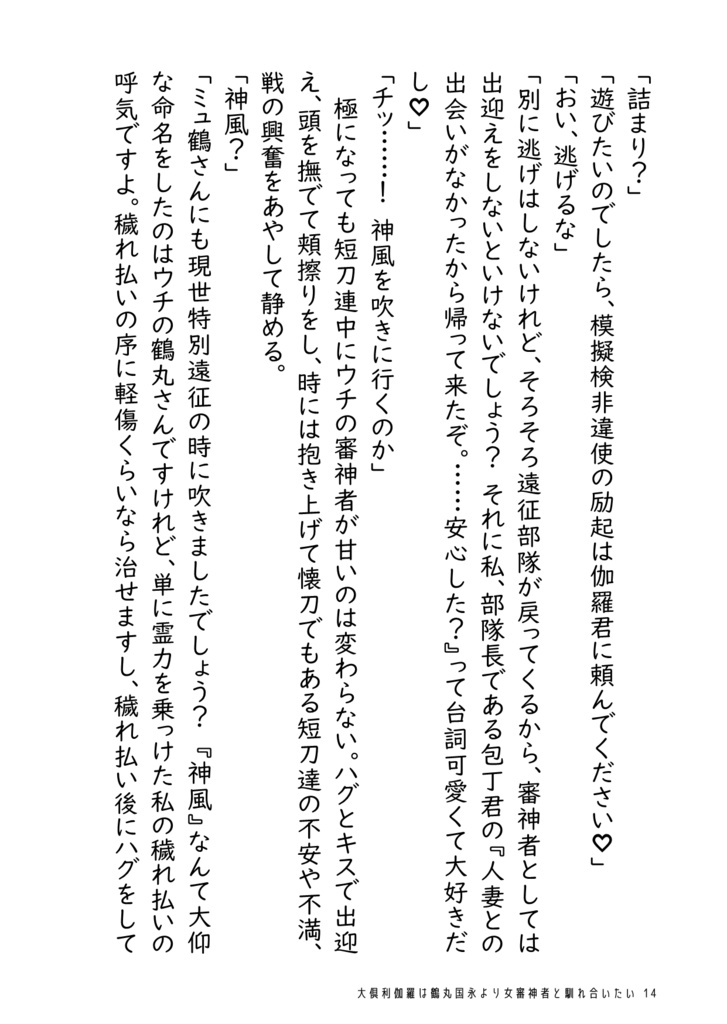 「詰まり？」
「遊びたいのでしたら、模擬検非違使の励起は伽羅君に頼んでください♡」
「おい、逃げるな」
「別に逃げはしないけれど、そろそろ遠征部隊が戻ってくるから、審神者としては
出迎えをしないといけないでしょう？ それに私、部隊長である包丁君の『人妻との
出会いがなかったから帰って来たぞ。……安心した？』って台詞可愛くて大好きだ
し♡」
「チッ……！ 神風を吹きに行くのか」
　極になっても短刀連中にウチの審神者が甘いのは変わらない。ハグとキスで出迎
え、頭を撫でて頬擦りをし、時には抱き上げて懐刀でもある短刀達の不安や不満、
戦の興奮をあやして静める。
「神風？」
「ミュ鶴さんにも現世特別遠征の時に吹きましたでしょう？ 『神風』なんて大仰
な命名をしたのはウチの鶴丸さんですけれど、単に霊力を乗っけた私の穢れ払いの
呼気ですよ。穢れ払いの序に軽傷くらいなら治せますし、穢れ払い後にハグをして
大倶利伽羅は鶴丸国永より女審神者と馴れ合いたい 14